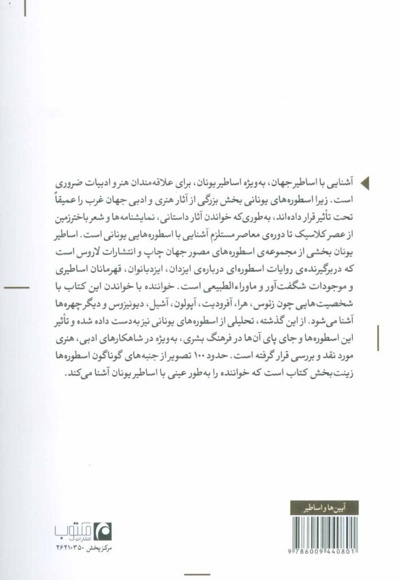 آشنایی با اساطیر جهان، به‌ویژه اساطیر یونان، برای علاقه‌مندان هنر و ادبیات ضروری
است. زیرا اسطوره‌های یونانی بخش بزرگی از آثار هنری و ادبی جهان غرب را عمیقاً
تحت تأثیر قرار داده‌اند، به‌طوری‌که خواندن آثار داستانی، نمایشنامه‌ها و شعر باخترزمین
از عصر کلاسیک تا دوره‌ی معاصر مستلزم آشنایی با اسطوره‌هایی یونانی است. اساطیر
یونان بخشی از مجموعه‌ی اسطوره‌های مصور جهان چاپ و انتشارات لاروس است
که دربرگیرنده‌ی روایات اسطوره‌ای درباره‌ی ایزدان، ایزدبانوان، قهرمانان اساطیری
و موجودات شگفت‌آور و ماوراءالطبیعی است. خواننده با خواندن این کتاب با
شخصیت‌هایی چون زئوس، هرا، آفرودیت، آپولون، آشیل، دیونیزوس و دیگر چهره‌ها
آشنا می‌شود. از این گذشته، تحلیلی از اسطوره‌های یونانی نیز به‌دست داده شده و تأثیر
این اسطوره‌ها و جای پای آن‌ها در فرهنگ بشری، به‌ویژه در شاهکارهای ادبی، هنری
مورد نقد و بررسی قرار گرفته است. حدود ۱۰۰ تصویر از جنبه‌های گوناگون اسطوره‌ها
زینت‌بخش کتاب است که خواننده را به‌طور عینی با اساطیر یونان آشنا می‌کند.
آیین‌ها و اساطیر
9 786009 440801
مرکز پخش ۶۶۴۱۰۳۵۰